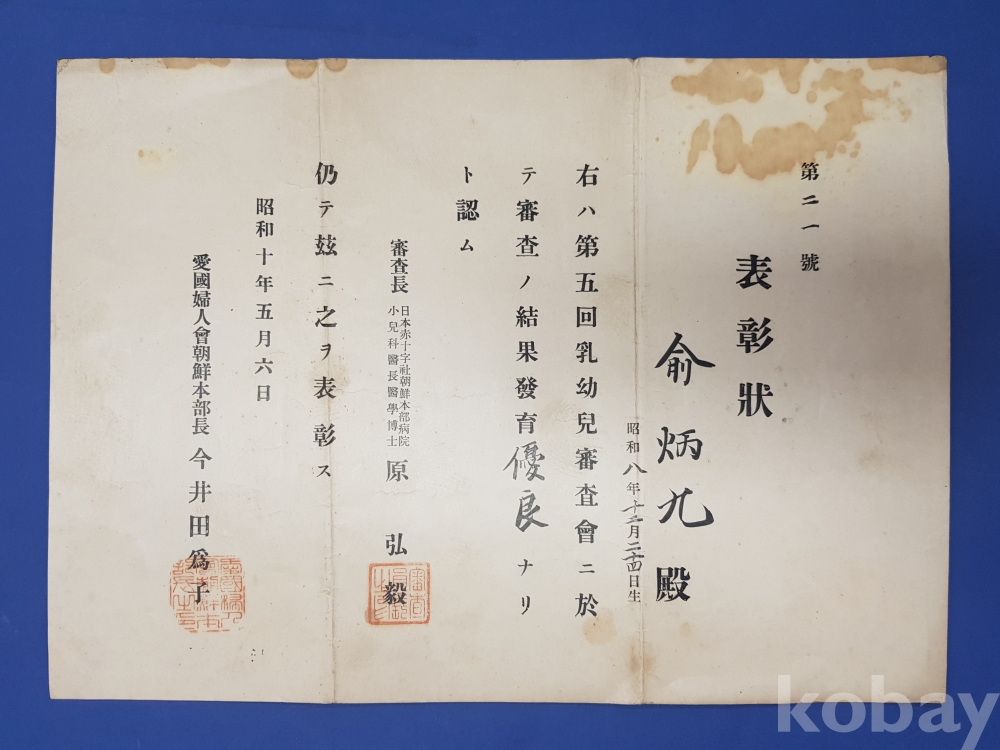 第二一號
表彰狀
俞炳九殿
昭和八年十二月二十四日生
右ハ第五回乳幼兒審査會ニ於
テ審查ノ結果發育優良ナリ
ト認ム
審查長 日本赤十字社朝鮮本部病院
小兒科醫長醫學博士 原弘毅
仍テ玆ニ之ヲ表彰ス
昭和十年五月六日
愛國婦人會朝鮮本部長 今井田爲子
kobay